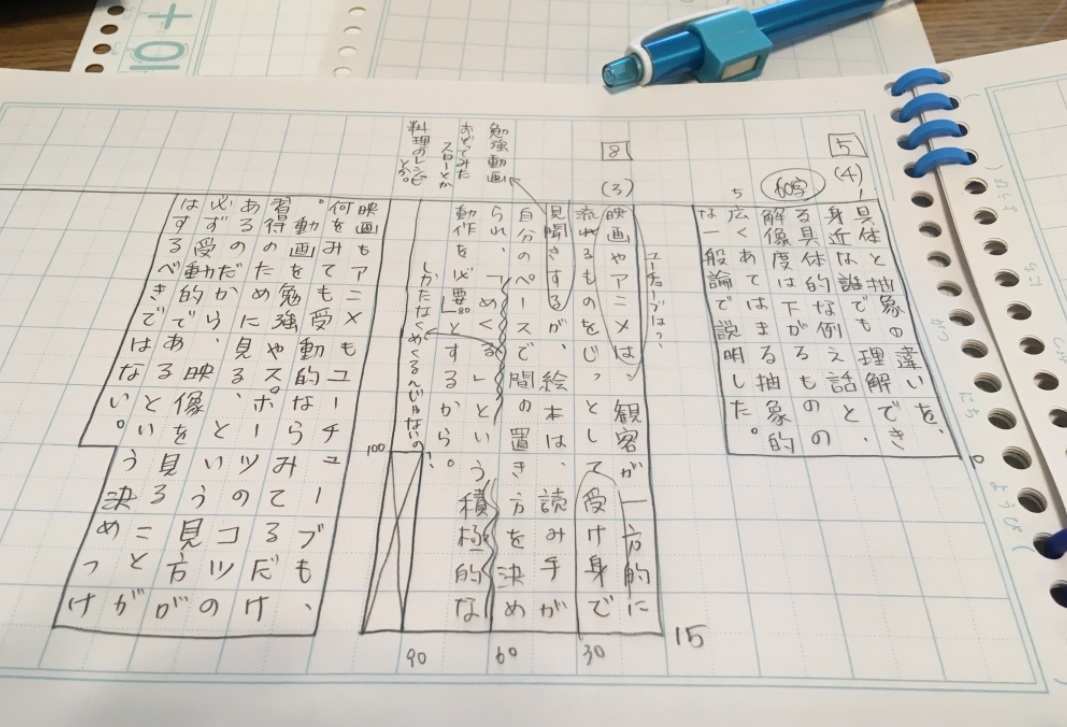 +01
5
(4)
60字
具体と抽象の違いを、
身近な誰でも理解でき
る具体的な例え話と、
解像度は下がるものの
広くあてはまる抽象的
な一般論で説明した。
8
(3)
ユーチューブは?、
映画やアニメは、観客が一方的に
流れるものをじっとして受け身で
見聞きするが、絵本は、読み手が
自分のペースで間の置き方を決め
られ、「めくる」という積極的な
動作を必要とするから。
15
30
60
90
100
勉強動画
おどてみた
スローとか
料理のレシピ
とか。
しかたなくめくるんじゃないの?
映画もアニメもユーチューブも、
何をみても受動的ならみてるだけ
。動画を勉強やスポーツのコツの
習得のために見る、という見方が
あるのだから、映像を見ることが
必ず受動的であるという決めつけ
はするべきではない。